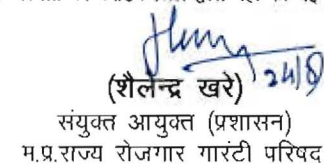 24/8
(शैलेन्द्र खरे)
संयुक्त आयुक्त (प्रशासन)
म.प्र.राज्य रोजगार गारंटी परिषद